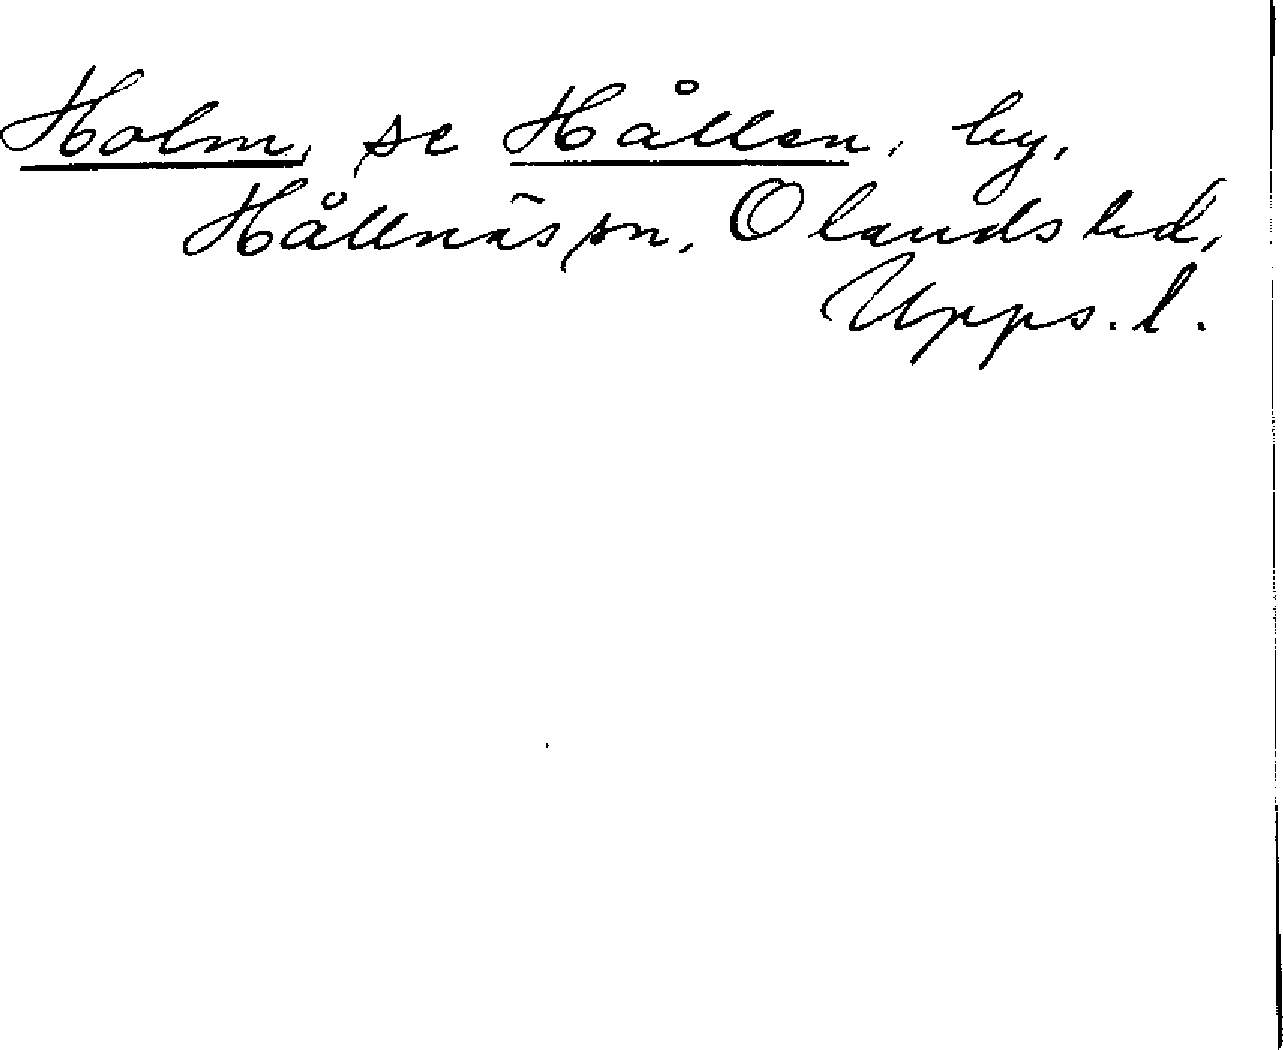 Holm, se Hållen, by,
Hållnäs sn, Olands hd,
Upps. l.